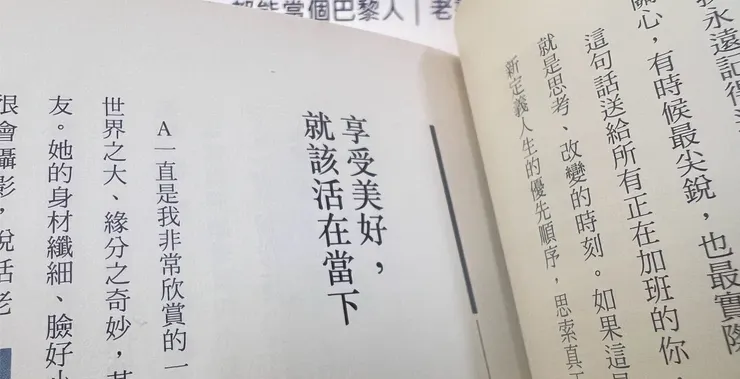 都能當個巴黎人｜老
永遠記得
關心，有時候最尖銳，也最實際
這句話送給所有正在加班的你，
就是思考、改變的時刻。如果這
新定義人生的優先順序，思索真
享受美好，
就該活在當下
A一直是我非常欣賞的一
世界之大、緣分之奇妙，
友。她的身材纖細、臉好小
很會攝影，說話老